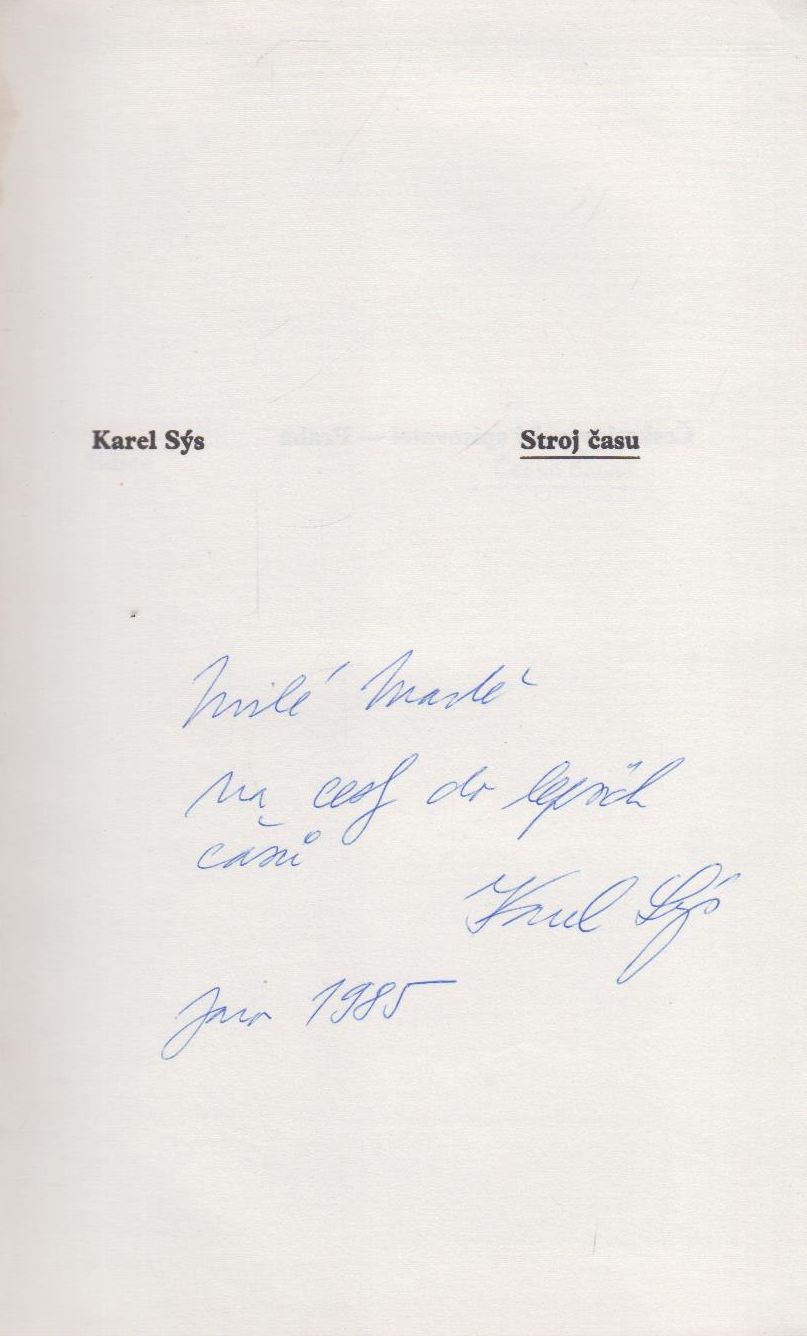 Karel Sýs Stroj času
Milé
na cestu do lepších
časů
Karel Sýs
jaro 1985